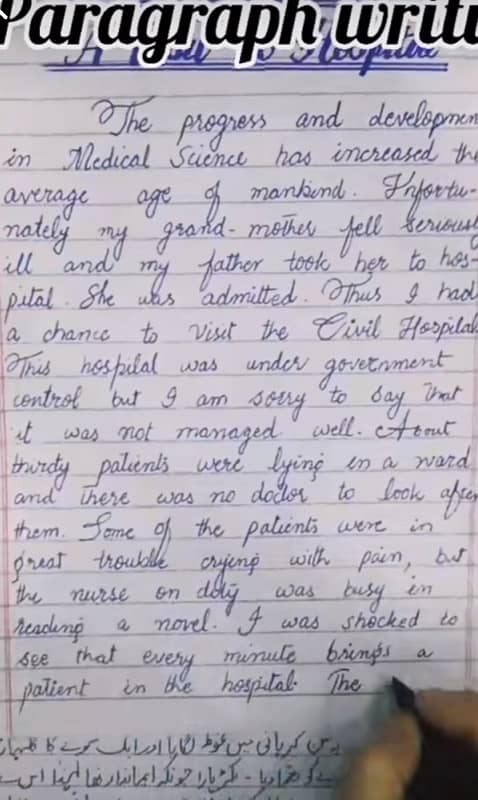 Paragraph writi
A Visit to Hospital
The progress and developmen
in Medical Science has increased the
average age of mankind. Unfortu-
nately my grand-mother fell serious
ill and my father took her to hos-
pital. She was admitted. Thus I had
a chance to visit the Civil Hospital
This hospital was under government
control but I am sorry to say that
it was not managed well. About
thirdy patients were lying in a ward
and there was no doctor to look after
them. Some of the patients were in
great trouble crying with pain, but
the nurse on doty was busy in
reading a novel. I was shocked to
see that every minute brings a
patient in the hospital. The